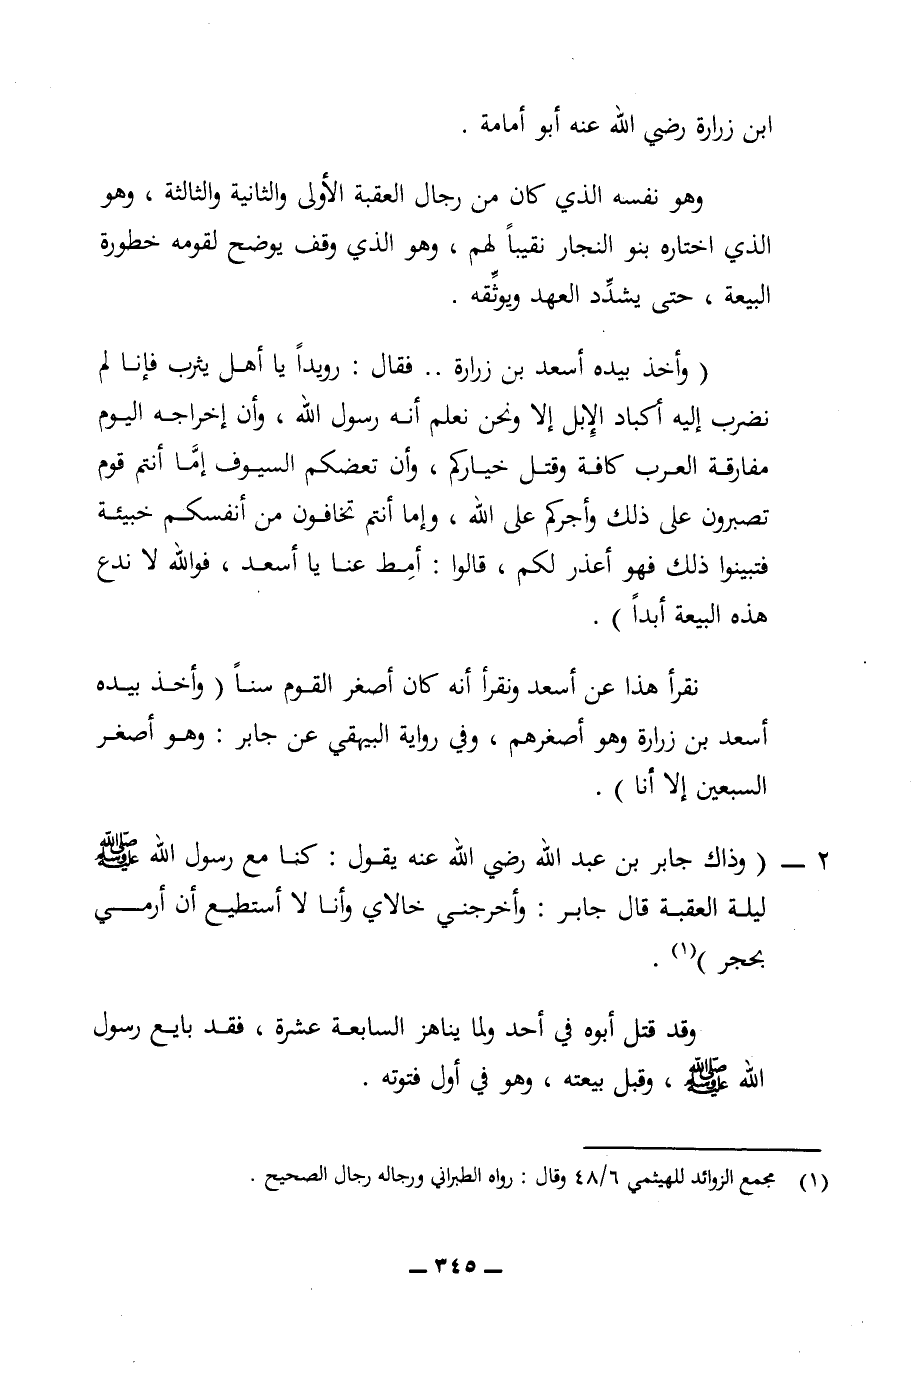 ابن زرارة رضي الله عنه أبو أمامة .
وهو نفسه الذي كان من رجال العقبة الأولى والثانية والثالثة ، وهو
الذي اختاره بنو النجار نقيباً لهم ، وهو الذي وقف يوضح لقومه خطورة
البيعة ، حتى يشدِّد العهد ويوثِّقه .
( وأخذ بيده أسعد بن زرارة .. فقال : رويداً يا أهل يثرب فإنا لم
نضرب إليه أكباد الإبل إلا ونحن نعلم أنه رسول الله ، وأن إخراجه اليوم
مفارقة العرب كافة وقتل خياركم ، وأن تعضكم السيوف إمَّا أنتم قوم
تصبرون على ذلك وأجركم على الله ، وإما أنتم تخافون من أنفسكم خبيئة
فتبينوا ذلك فهو أعذر لكم ، قالوا : أمِط عنا يا أسعد ، فوالله لا ندع
هذه البيعة أبداً ) .
نقرأ هذا عن أسعد ونقرأ أنه كان أصغر القوم سناً ( وأخذ بيده
أسعد بن زرارة وهو أصغرهم ، وفي رواية البيهقي عن جابر : وهو أصغر
السبعين إلا أنا ) .
٢ ـ ( وذاك جابر بن عبد الله رضي الله عنه يقول : كنا مع رسول الله ﷺ
ليلة العقبة قال جابر : وأخرجني خالاي وأنا لا أستطيع أن أرمي
بحجر )(١) .
وقد قتل أبوه في أحد ولما يناهز السابعة عشرة ، فقد بايع رسول
الله ﷺ ، وقبل بيعته ، وهو في أول فتوته .
(١) مجمع الزوائد للهيثمي ٤٨/٦ وقال : رواه الطبراني ورجاله رجال الصحيح .
ـ ٣٤٥ ـ